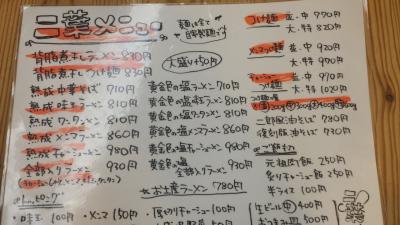 二葉メニュー
麺は全て
自家製麺です
大盛り+50円
背脂煮干しラーメン 830円
背脂煮干しつけ麺 830円
熟成中華そば 710円
熟成味玉ラーメン 810円
熟成ワンタンメン 810円
熟成メンマラーメン 860円
熟成チャーシューメン 980円
全部入りラーメン 930円
トッピング
味玉 100円
メンマ 150円
黄金色の塩ラーメン 710円
黄金色の塩味玉ラーメン 810円
黄金色の塩ワンタンメン 810円
黄金色の塩メンマラーメン 860円
黄金の塩チャーシューメン 980円
黄金の塩
全部入りラーメン 930円
お土産ラーメン 780円
厚切りチャーシュー 100円
つけ麺 並・中 770円
大・特 820円
メンマつけ麺 並・中 920円
大・特 970円
チャーシューつけ麺 並・中 970円
大・特 1020円
二郎風油そば 780円
復刻版油そば 930円
ご飯もの
元祖肉飯 250円
炙りチャーシュー飯 350円
半ライス 100円
生ビール中 400円
おつまみ皿 500円